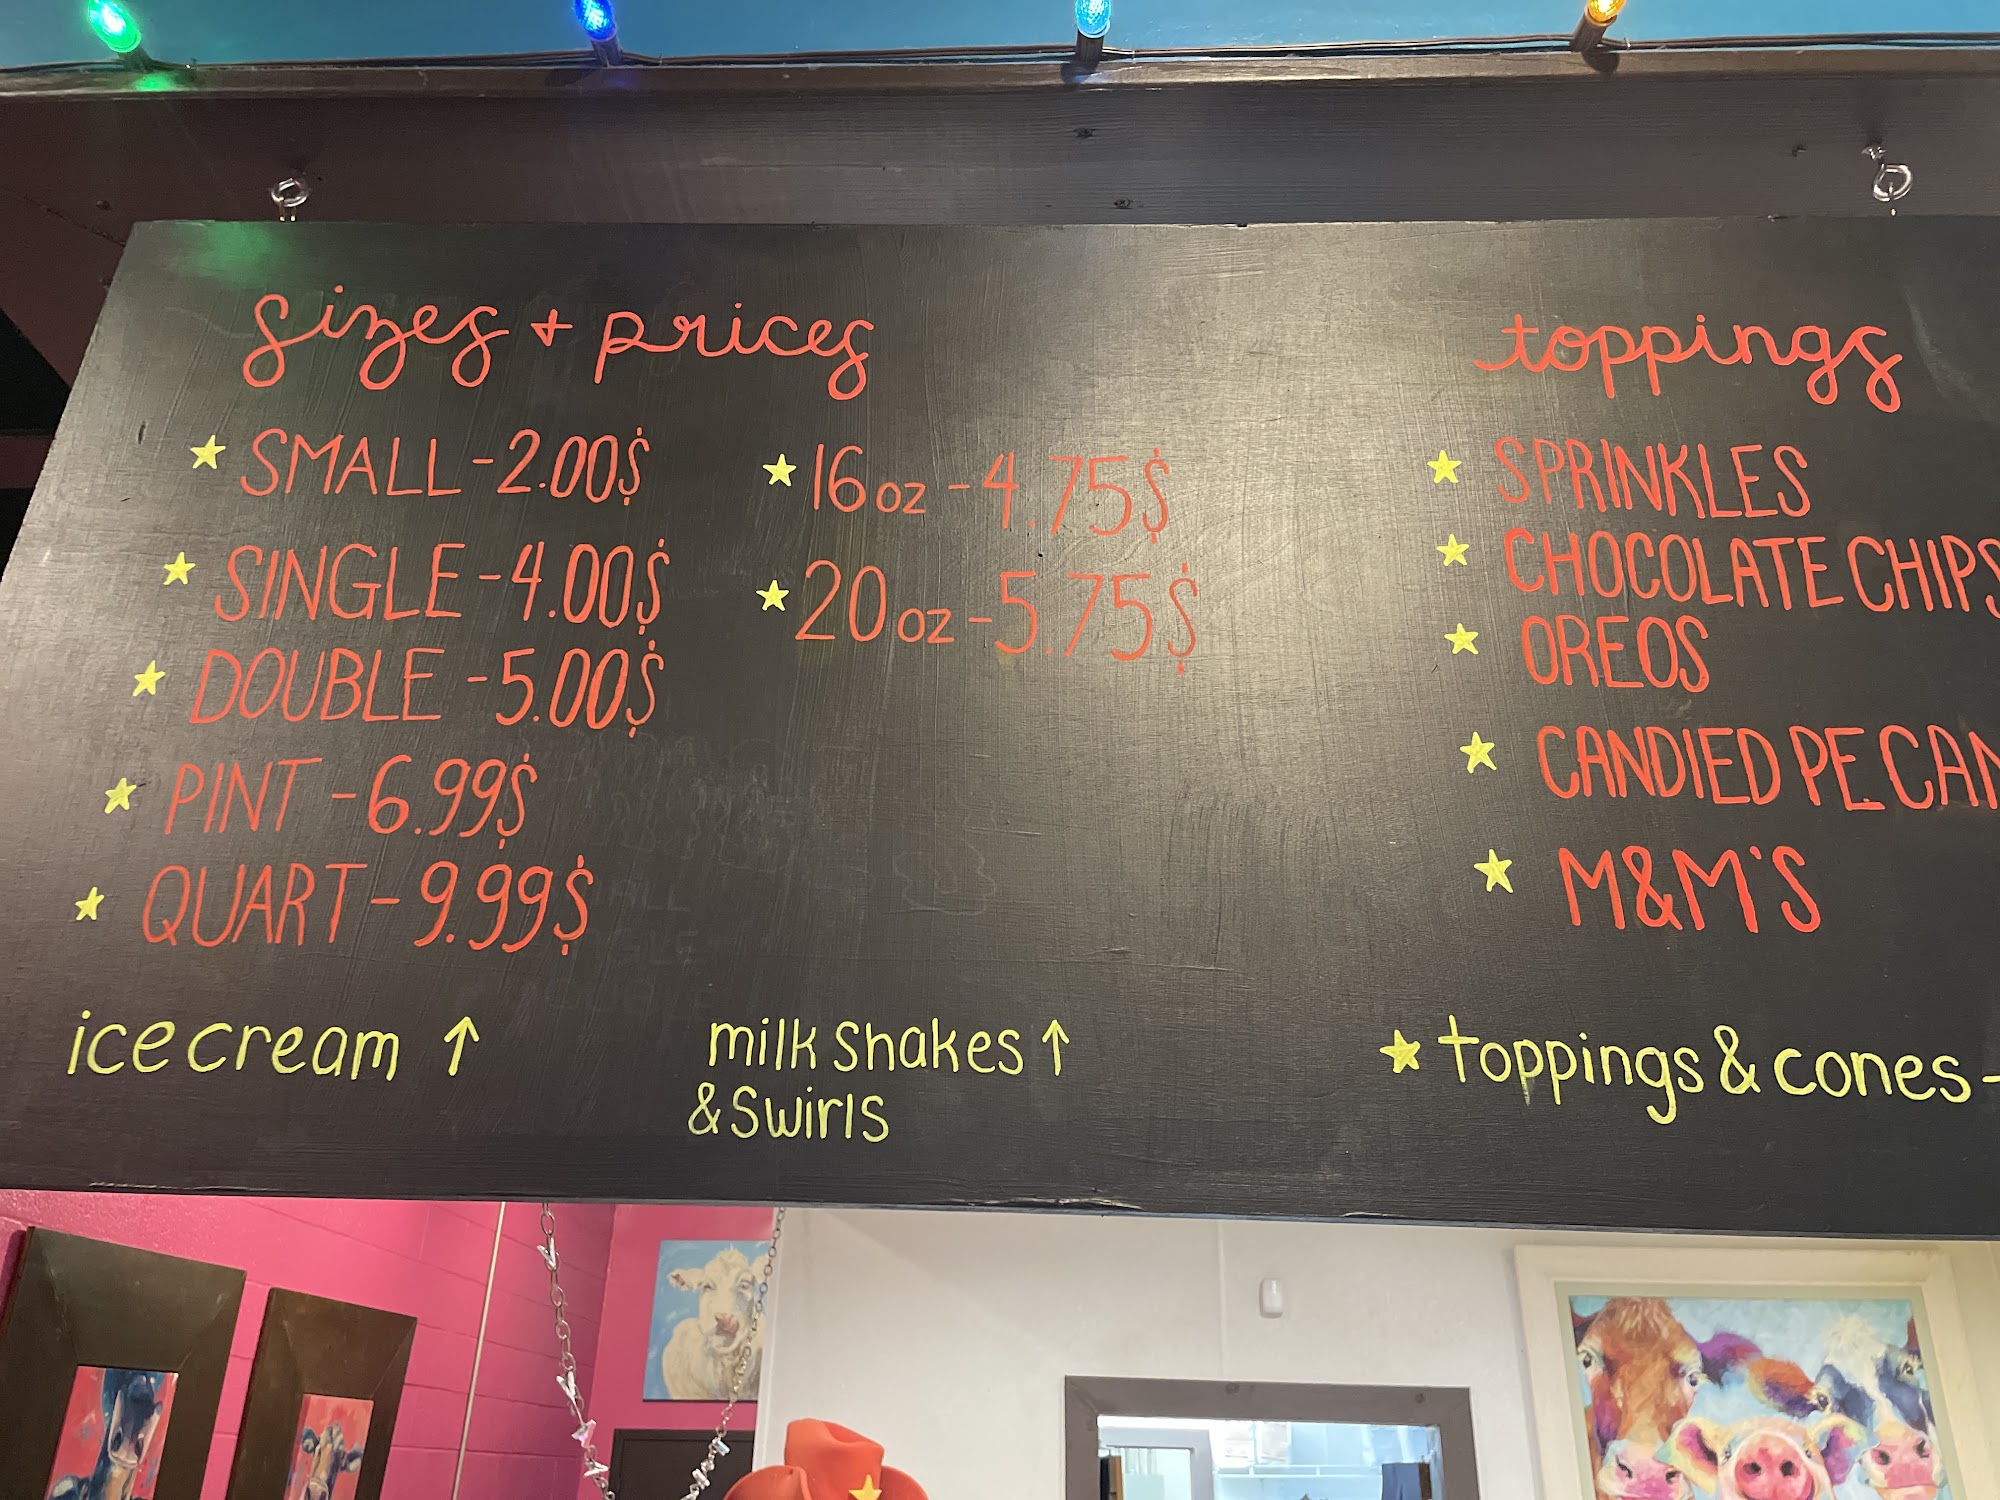 sizes + prices
★ SMALL - 2.00$
★ SINGLE - 4.00$
★ DOUBLE - 5.00$
★ PINT - 6.99$
★ QUART - 9.99$
ice cream ↑
★ 16 oz - 4.75$
★ 20 oz - 5.75$
milk shakes ↑
& swirls
toppings
★ SPRINKLES
★ CHOCOLATE CHIPS
★ OREOS
★ CANDIED PECAN
★ M&M'S
★ toppings & cones -